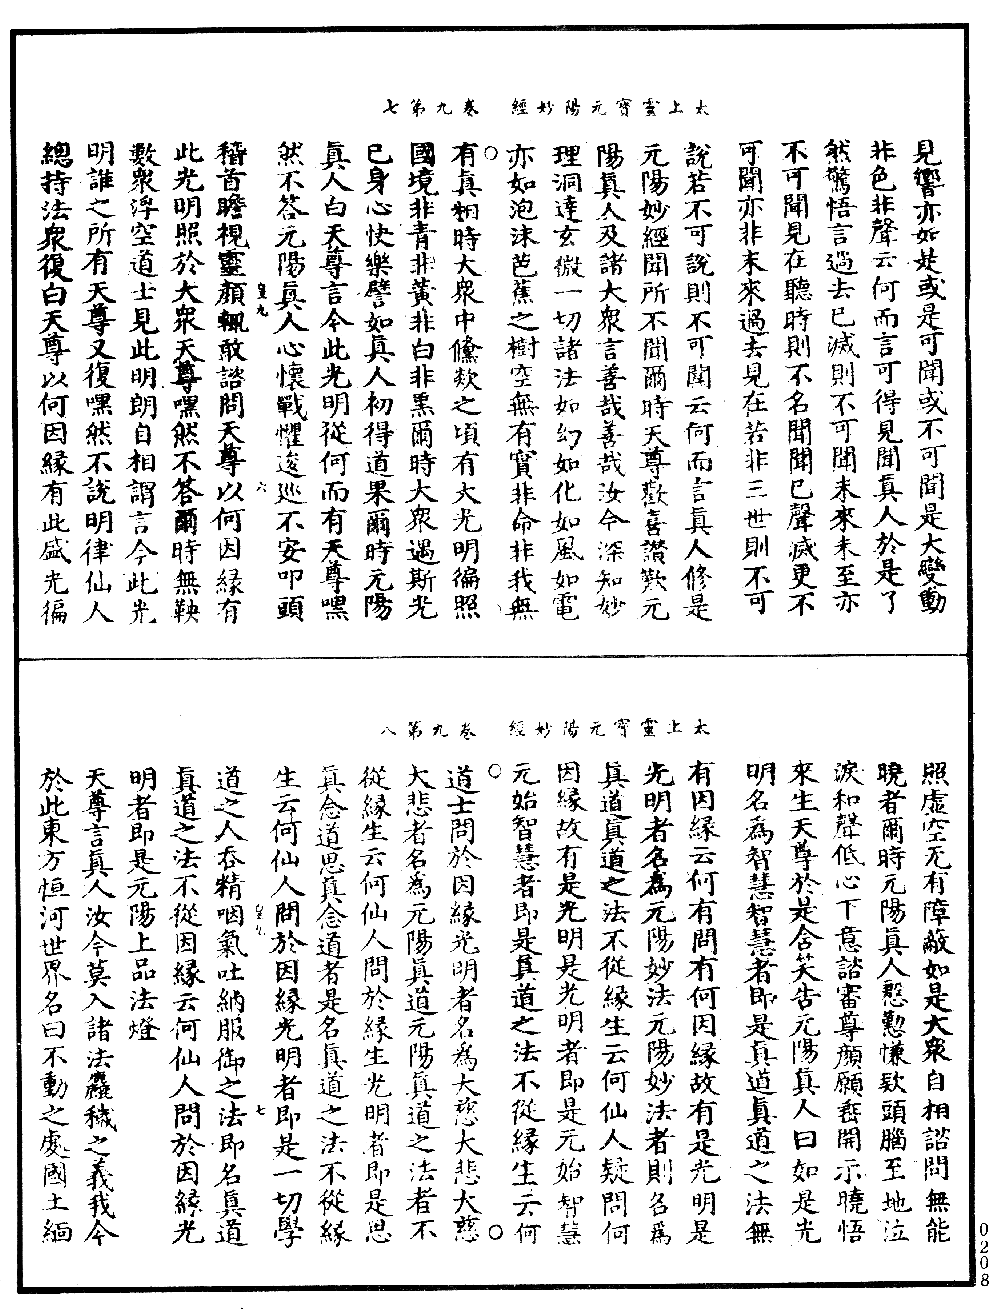 太上靈寶元陽妙經　卷九第七
見響亦如是或是可聞或不可聞是大變動
非色非聲云何而言可得見聞真人於是了
然驚悟言過去已滅則不可聞未來未至亦
不可聞見在聽時則不名聞聞已聲滅更不
可聞亦非未來過去見在若非三世則不可
說若不可說則不可聞云何而言真人修是
元陽妙經聞所不聞爾時天尊歡喜讚歎元
陽真人及諸大衆言善哉善哉汝今深知妙
理洞達玄微一切諸法如幻如化如風如電
亦如泡沫芭蕉之樹空無有實非命非我無
○
有真相時大衆中儵欻之頃有大光明徧照
國境非青非黃非白非黑爾時大衆遇斯光
已身心快樂譬如真人初得道果爾時元陽
真人白天尊言今此光明從何而有天尊嘿
然不答元陽真人心懷戰懼逡巡不安叩頭
皇九　六
稽首瞻視靈顏輒敢諮問天尊以何因緣有
此光明照於大衆天尊嘿然不答爾時無鞅
數衆浮空道士見此明朗自相謂言今此光
明誰之所有天尊又復嘿然不說明律仙人
總持法衆復白天尊以何因緣有此盛光徧
太上靈寶元陽妙經　卷九第八
照虛空无有障蔽如是大衆自相諮問無能
曉者爾時元陽真人慇懃慊欵頭腦至地泣
淚和聲低心下意諮審尊顏願垂開示曉悟
來生天尊於是含笑告元陽真人曰如是光
明名為智慧智慧者即是真道真道之法無
有因緣云何有問有何因緣故有是光明是
光明者名為元陽妙法元陽妙法者則名為
真道真道之法不從緣生云何仙人疑問何
因緣故有是光明是光明者即是元始智慧
元始智慧者即是真道之法不從緣生云何
○　○
道士問於因緣光明者名為大慈大悲大慈
大悲者名為元陽真道元陽真道之法者不
從緣生云何仙人問於緣生光明者即是思
真念道思真念道者是名真道之法不從緣
生云何仙人問於因緣光明者即是一切學
皇九　七
道之人吞精咽氣吐納服御之法即名真道
真道之法不從因緣云何仙人問於因緣光
明者即是元陽上品法燈
天尊言真人汝今莫入諸法麤穢之義我今
於此東方恒河世界名曰不動之處國土緬
0208